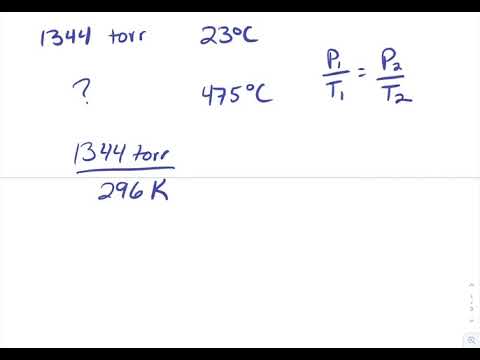 1344 torr 23°C
? 475°C
P₁/T₁ = P₂/T₂
1344 torr
296 K